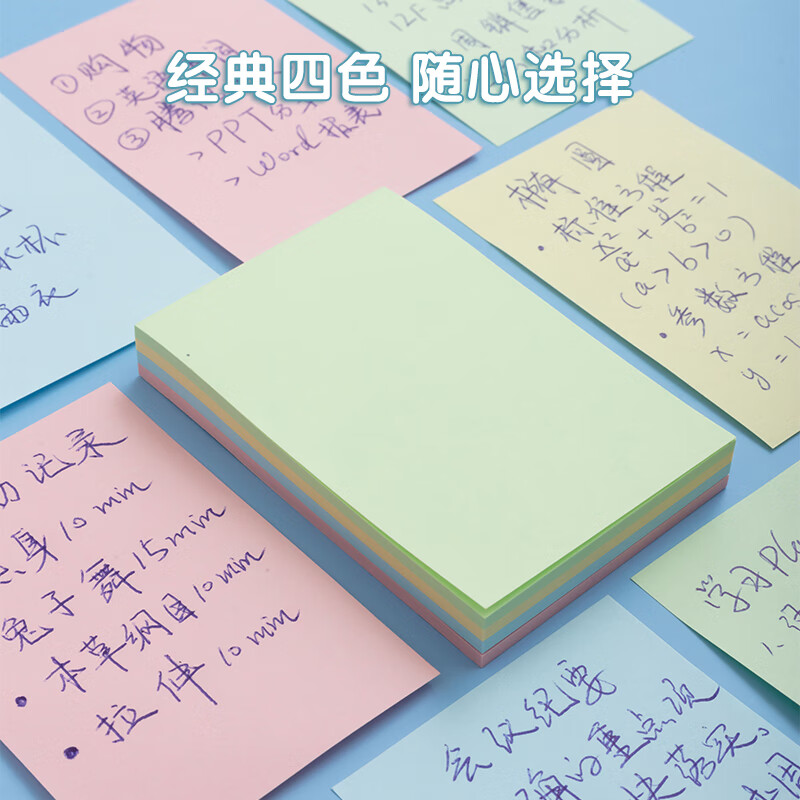 经典四色 随心选择
12F
周销售
分析
①购物
②英语
③腾
>PPT分享
>Word报表
水杯
雨衣
椭圆
·标准方程
x²/a² + y²/b² = 1
(a>b>0)
·参数方程
x = acos
y =
记录
身10min
兔子舞15min
·本草纲目10min
·拉伸10min
学习Pla
会议纪要
的重点项
快落实。
周